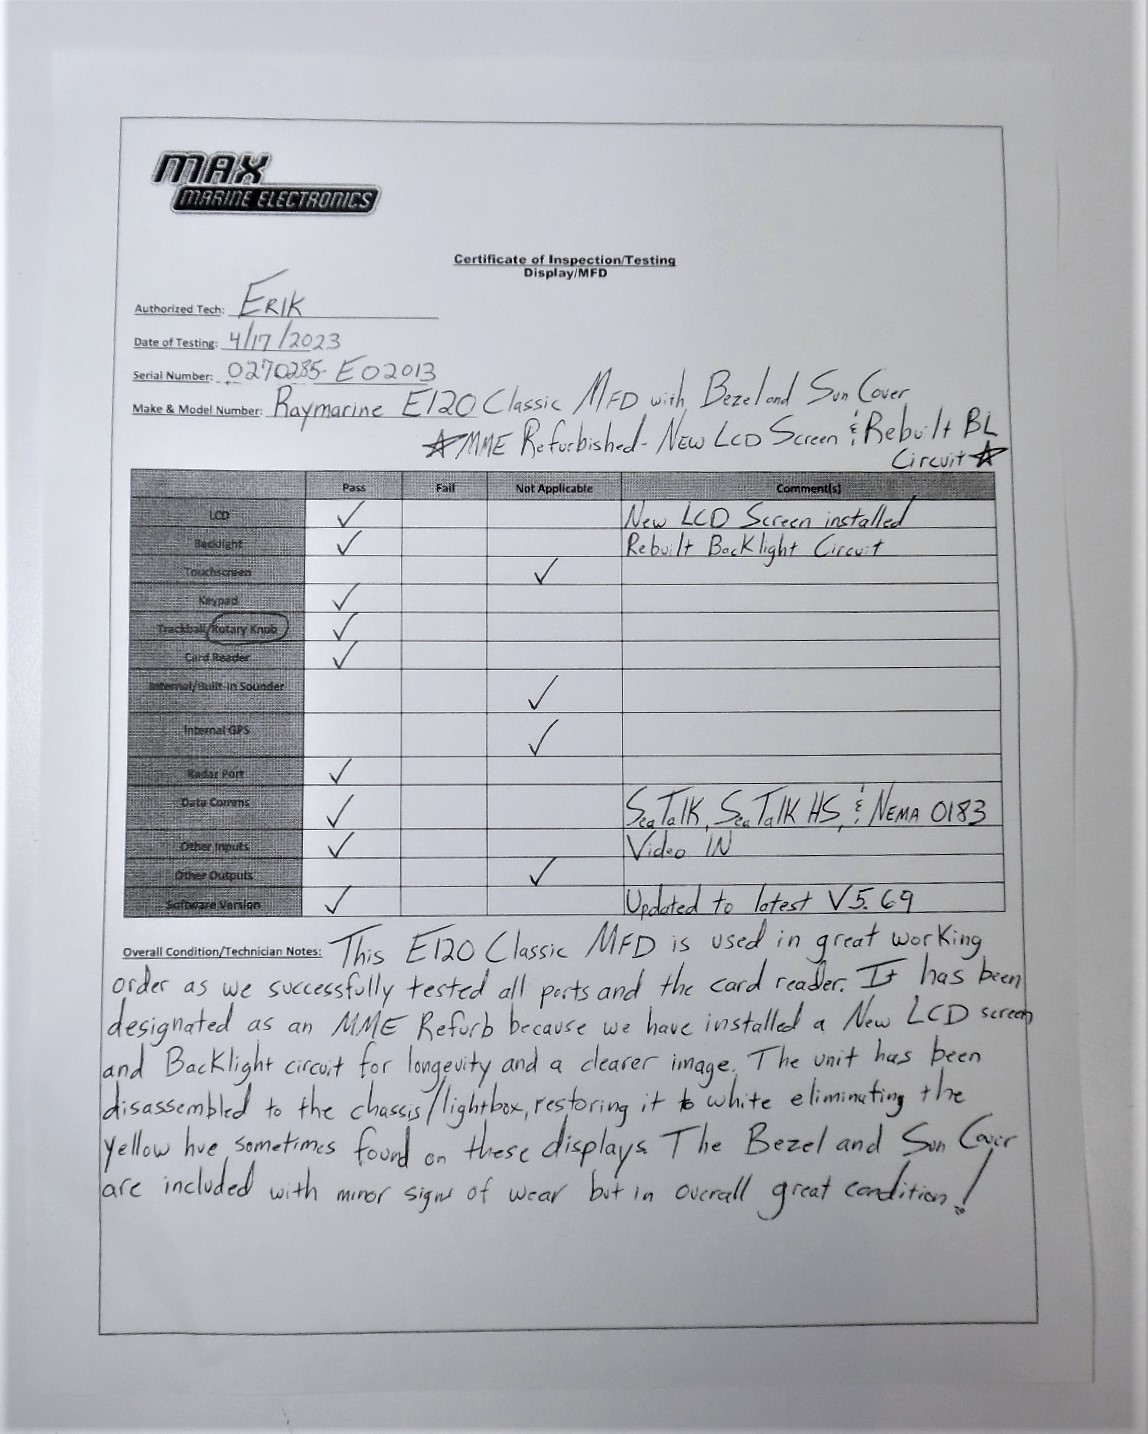 MAX
MARINE ELECTRONICS
Certificate of Inspection/Testing
Display/MFD
Authorized Tech: ERIK
Date of Testing: 4/17/2023
Serial Number: 0270285- E02013
Make & Model Number: Raymarine E120 Classic MFD with Bezel and Sun Cover
☆MME Refurbished - New LCD Screen & Rebuilt BL
Circuit☆
Pass Fail Not Applicable Comment(s)
LCD ✓ New LCD Screen installed
Backlight ✓ Rebuilt Backlight Circuit
Touchscreen ✓
Keypad ✓
Trackball/Rotary Knob ✓
Card Reader ✓
Internal/Built-in Sounder ✓
Internal GPS ✓
Radar Port ✓
Data Comms ✓ SeaTalk, SeaTalk HS, & NEMA 0183
Other Inputs ✓ Video IN
Other Outputs ✓
Software Version ✓ Updated to latest V5.69
Overall Condition/Technician Notes: This E120 Classic MFD is used in great working
order as we successfully tested all ports and the card reader. It has been
designated as an MME Refurb because we have installed a New LCD screen
and Backlight circuit for longevity and a clearer image. The unit has been
disassembled to the chassis/lightbox, restoring it to white eliminating the
yellow hue sometimes found on these displays. The Bezel and Sun Cover
are included with minor signs of wear but in overall great condition!